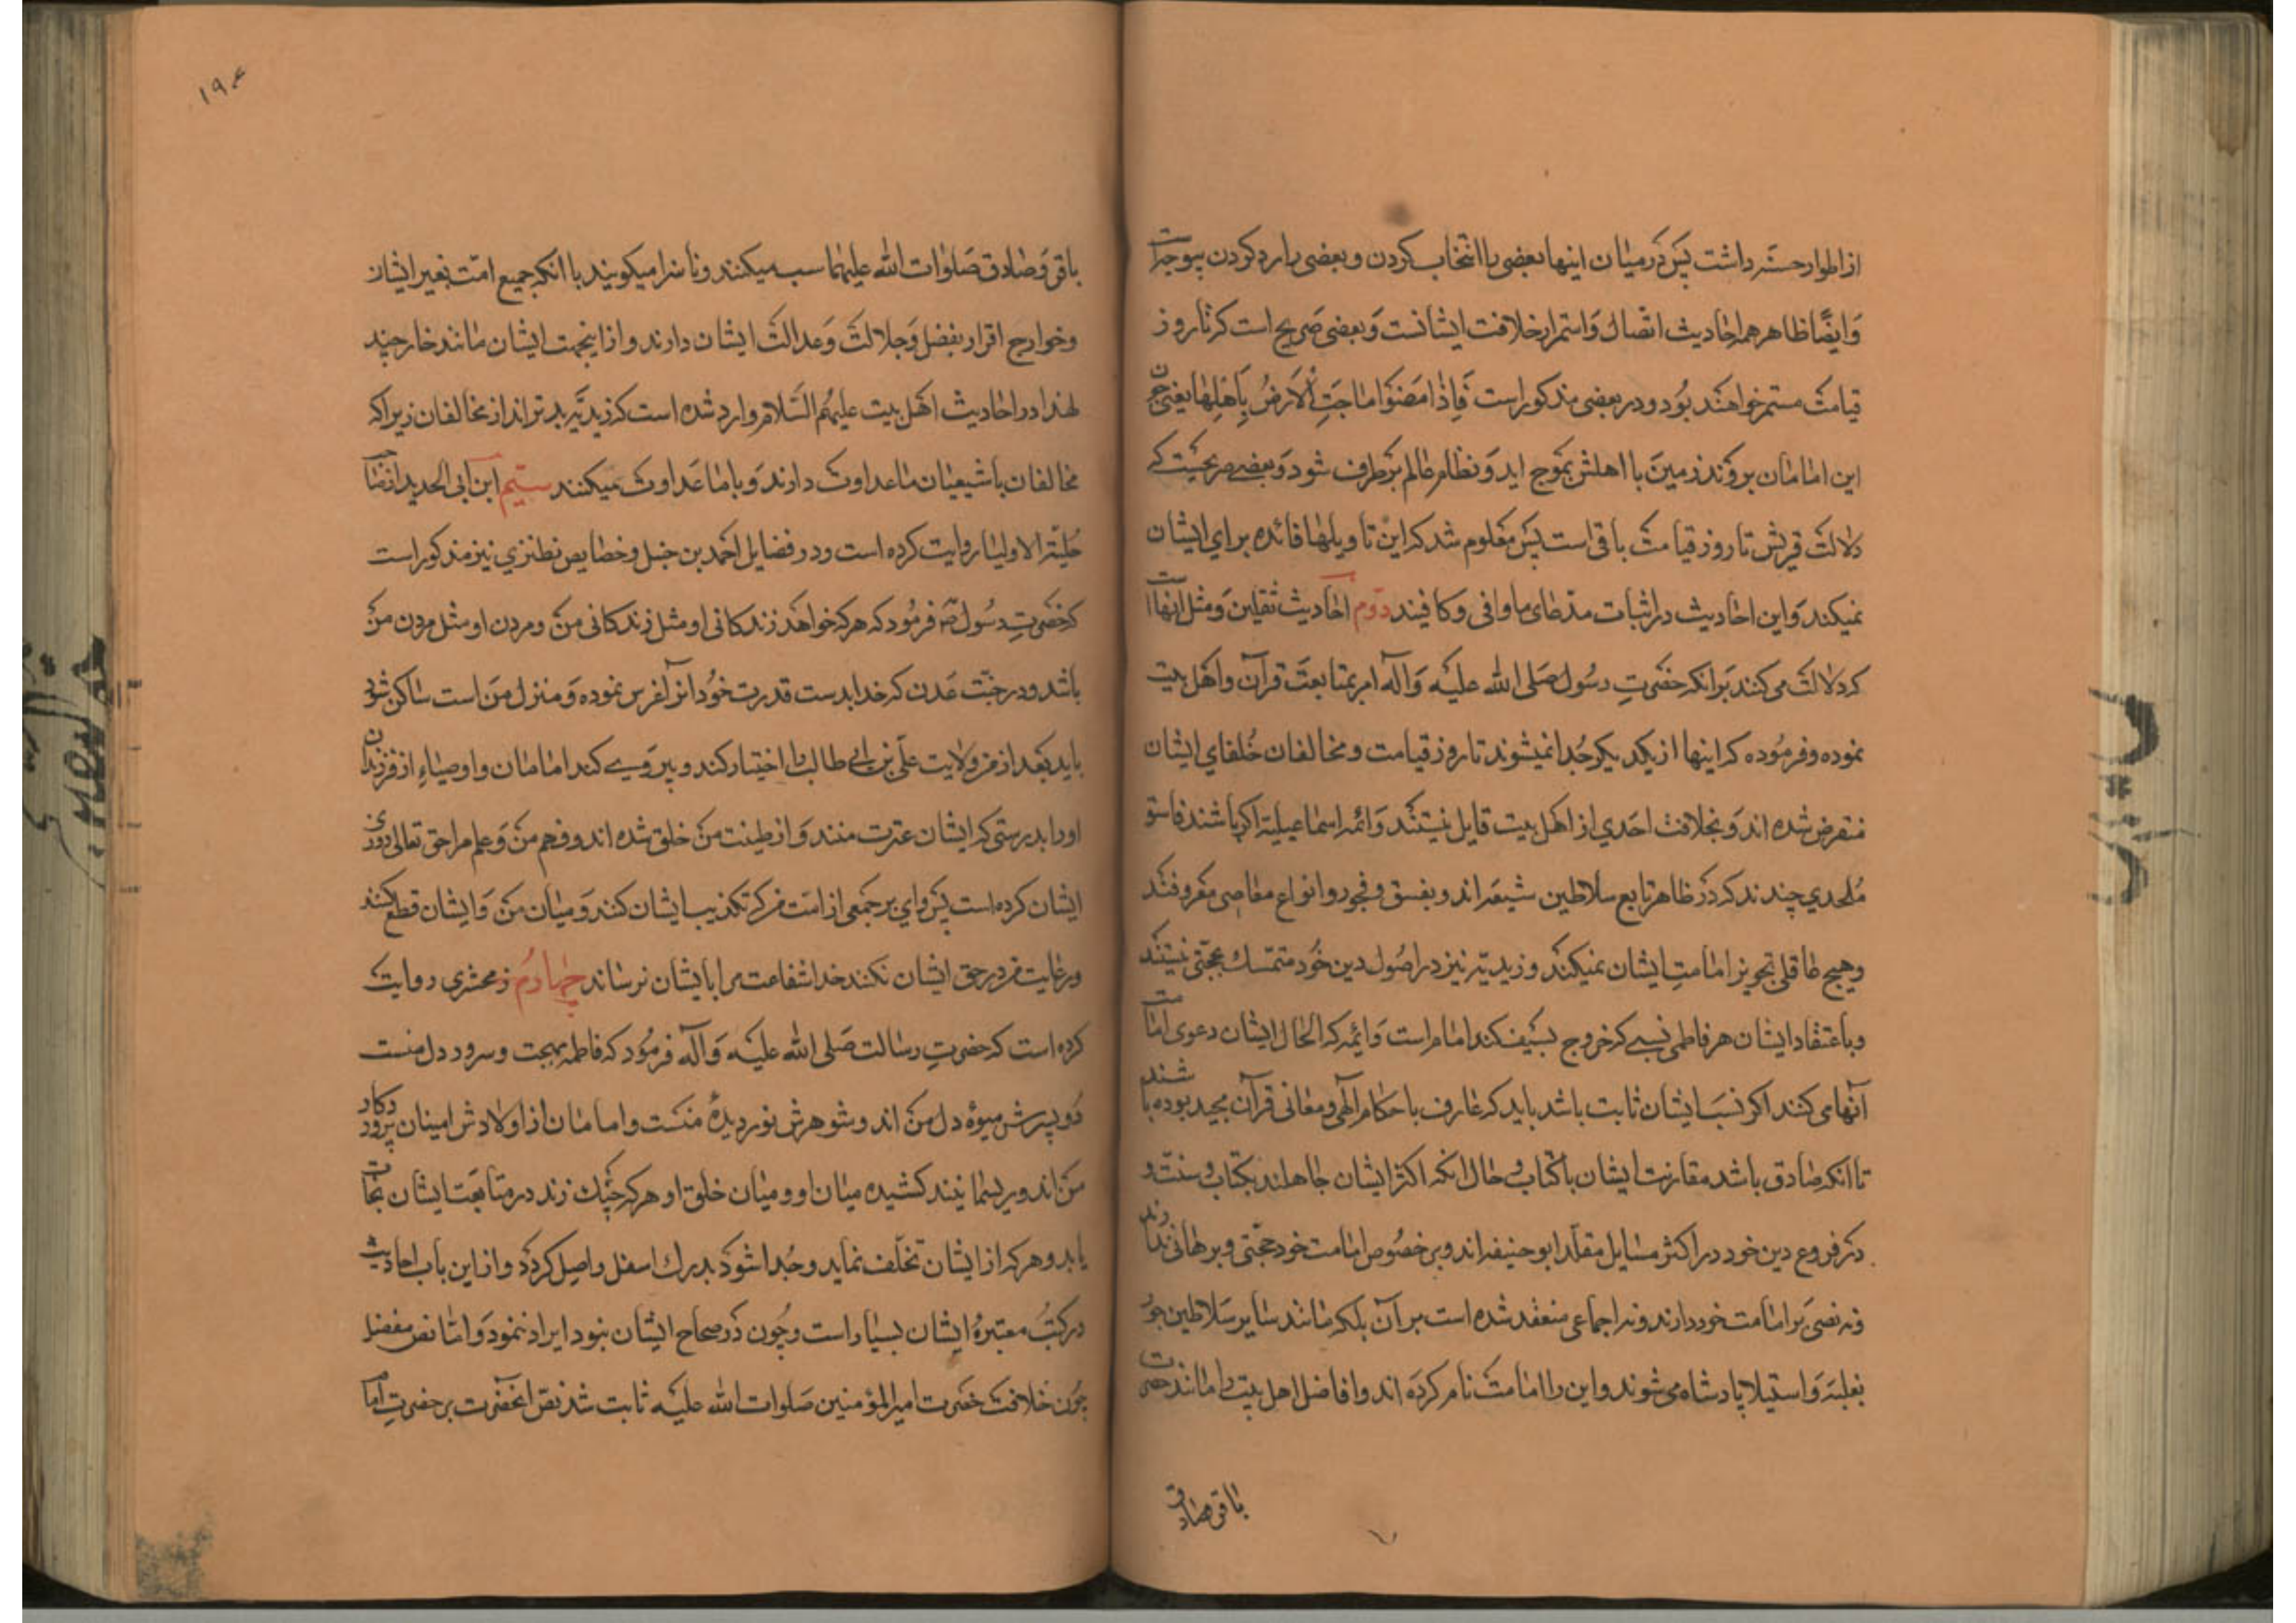 از اطوار حسنه داشت پس در میان اینها بعضی را انتخاب کردن و بعضی را رد کردن بیوجهست
وایضا ظاهر همه احادیث اتصال و استمرار خلافت ایشانست و بعضی صریح است که تا روز
قیامت مستمر خواهند بود و در بعضی مذکور است فاذا مضوا ماجت الارض باهلها یعنی چون
این امامان بروند زمین با اهلش بموج اید و نظام عالم برطرف شود و بعضی صریحست که
دلالت قریش تا روز قیامت باقی است پس معلوم شد که این تاویلها فائده برای ایشان
نمیکند و این احادیث در اثبات مدعای ما وافی و کافیند دوم احادیث ثقلین و مثل انهاست
که دلالت می کنند بر انکه حضرت رسول صلی الله علیه واله امر بمتابعت قرآن و اهل بیت
نموده و فرموده که اینها از یکدیکر جدا نمیشوند تا روز قیامت و مخالفان خلفای ایشان
منقرض شده اند و بخلافت احدی از اهل بیت قایل نیستند و ائمه اسماعیلیه اکر باشند فاسق
ملحدی چندند که در ظاهر تابع سلاطین شیعه اند و بفسق و فجور و انواع معاصی معروفند
وهیچ عاقلی تجویز امامت ایشان نمیکند و زیدیه نیز در اصول دین خود متمسک بحجتی نیستند
و باعتقاد ایشان هر فاطمی نسبی که خروج بسیف کند امام است و ائمه که الحال ایشان دعوی امامت
آنها می کنند اکر نسب ایشان ثابت باشد باید که عارف باحکام آلهی و معانی قرآن مجید بوده باشند
تا انکه صادق باشد مقارنت ایشان با کتاب و حال انکه اکثر ایشان جاهلند بکتاب و سنت و
در فروع دین خود در اکثر مسایل مقلد ابو حنیفه اند و بر خصوص امامت خود حجتی و برهانی ندارند
ونه نصی بر امامت خود دارند و نه اجماعی منعقد شده است بر آن بلکه مانند سایر سلاطین جور
بغلبه و استیلا پادشاه می شوند و این را امامت نام کرده اند و افاضل اهل بیت را مانند حضرت
باقر و صادق
۱۹۴
باقر و صادق صلوات الله علیهما سب میکنند و ناسزا میکویند با انکه جمیع امت بغیر ایشان
وخوارج اقرار بفضل و جلالت و عدالت ایشان دارند و از اینجهت ایشان مانند خارجیند
لهذا در احادیث اهل بیت علیهم السلام وارد شده است که زیدیه بدترند از مخالفان زیرا که
مخالفان با شیعیان ما عداوت دارند و با ما عداوت نمیکنند سیم ابن ابی الحدید از صاحب
حلیة الاولیا روایت کرده است و در فضایل احمد بن حنبل و خصایص نطنزی نیز مذکور است
که حضرت رسول ص فرمود که هر که خواهد زندکانی او مثل زندکانی من و مردن او مثل مردن من
باشد و در جنت عدن که خدا بدست قدرت خود انرا آفرین نموده و منزل من است ساکن شود
باید بعد از من ولایت علی بن ابی طالب را اختیار کند و پیروی کند امامان و اوصیاء از فرزندان
اورا بدرستی که ایشان عترت منند و از طینت من خلق شده اند و فهم من و علم مرا حق تعالی روزی
ایشان کرده است پس وای بر جمعی از امت من که تکذیب ایشان کنند و میان من و ایشان قطع کنند
و رعایت من در حق ایشان نکنند خدا شفاعت مرا بایشان نرساند چهارم زمحشری روایت
کرده است که حضرت رسالت صلی الله علیه و آله فرمود که فاطمه بهجت و سرور دل منست
دو پسرش میوه دل من اند و شوهرش نور دیده منست و امامان از اولادش امینان پروردکار
من اند و ریسمانیند کشیده میان او و میان خلق او هر که چنک زند در متابعت ایشان نجات
یابد و هر که از ایشان تخلف نماید و جدا شود بدرک اسفل واصل کردد و از این باب احادیث
در کتب معتبره ایشان بسیار است و چون در صحاح ایشان نبود ایراد ننمود و اما نص مفصل
چون خلافت حضرت امیر المؤمنین صلوات الله علیه ثابت شد نص انحضرت بر حضرت امام